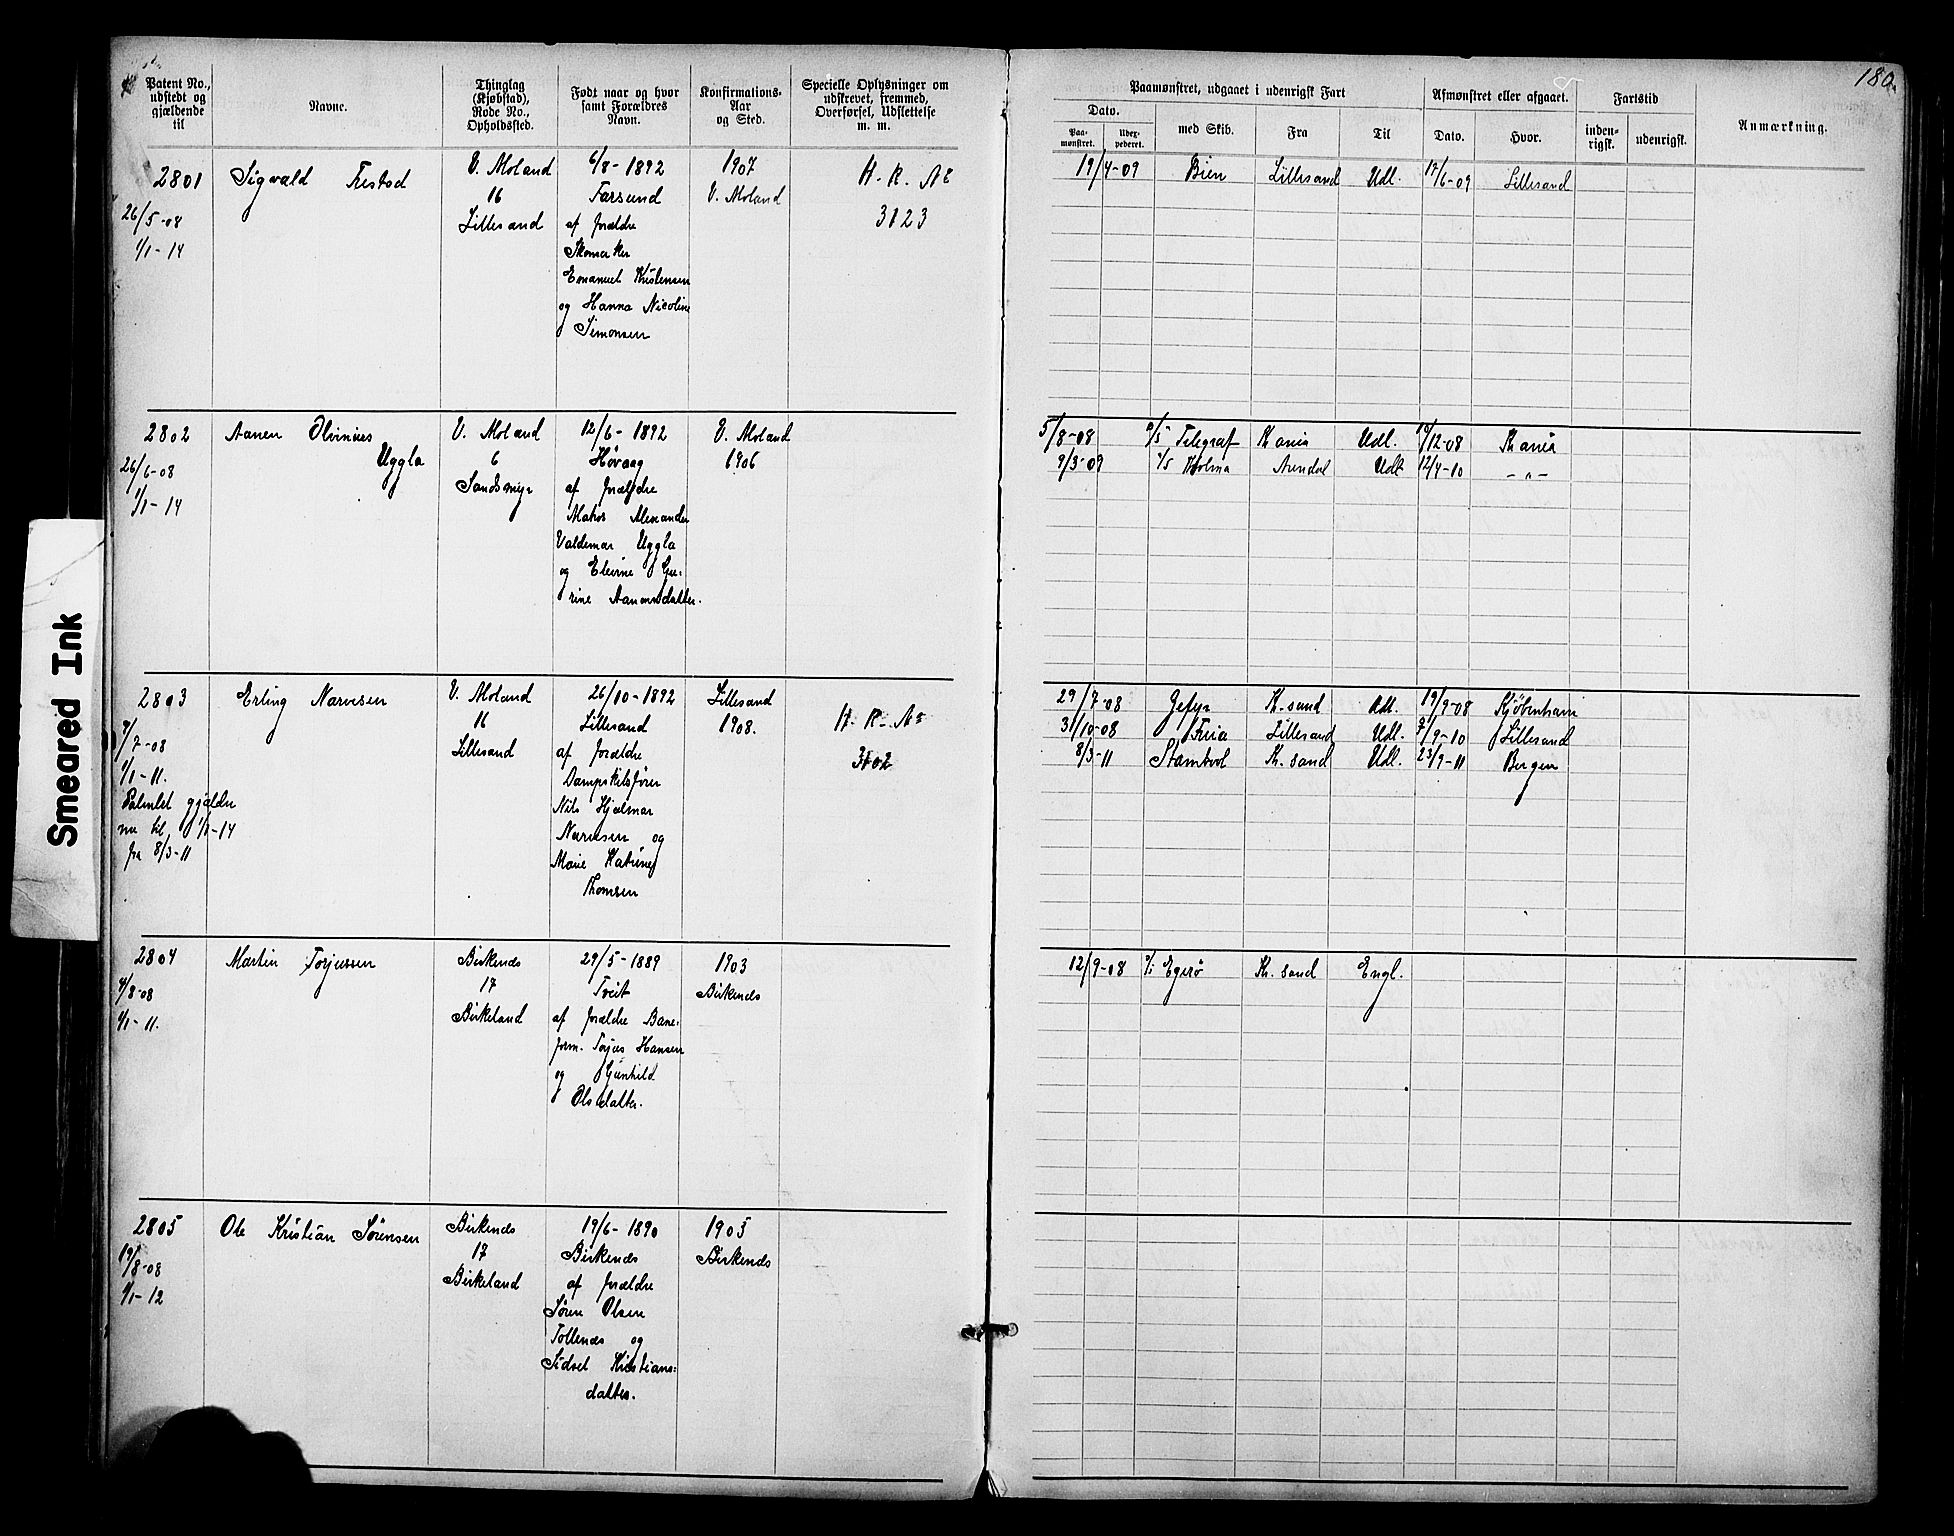 180.
Patent No., udstedt og gjældende til
Navne.
Thinglag (Kjøbstad), Rode No., Opholdssted.
Født naar og hvor samt Forældres Navn.
Konfirmations-Aar og Sted.
Specielle Oplysninger om udskrevet, fremmed, Overførsel, Udslettelse m. m.
Paamønstret, udgaaet i udenrigsk Fart
Dato.
Paa-mønstret.
Udex-pederet.
med Skib.
Fra
Til
Afmønstret eller afgaaet.
Dato.
Hvor.
Fartstid
inden-rigsk.
udenrigsk.
Anmærkning.
2801
26/5-08
1/1-14
Sigvald Trestad
V. Moland
16
Lillesand
6/8-1892
Farsund
af forældre
Skomaker
Emanuel Kristensen
og Hanna Nicoline
Simonsen
1907
V. Moland
H. R. No
3123
19/4-09 Bien Lillesand Udl. 17/6-09 Lillesand
2802
26/6-08
1/1-14
Aanen Olvinius
Uggla
V. Moland
6
Sandsmyr
12/6-1892
Høvaag
af forældre
Matros Alexander
Valdemar Uggla
og Elevine Gu-
rine Aanensdatter.
V. Moland
1906
5/8-08 Telegraf Kania Udl. 19/12-08 Kania
9/3-09 Holma Arendal Udl. 12/4-10 -"-
2803
7/7-08
1/1-11.
Patentet gjælder
nu til 1/1-14
fra 8/3-11
Erling Narvesen
V. Moland
16
Lillesand
26/10-1892
Lillesand
af forældre
Dampskibsfører
Nils Hjalmar
Narvesen og
Marie Katrine
Thomsen
Lillesand
1908.
H. R. No
3102
29/7-08 Gefyr K. sand Udl. 19/9-08 Kjøbenhavn
31/10-08 Fria Lillesand Udl. 7/9-10 Lillesand
8/3-11 Stamkvol K. sand Udl. 23/9-11 Bergen
2804
4/8-08
1/1-11.
Martin Torjussen
Birkenes
17
Birkeland
29/5-1889
Tveit
af forældre Bane-
form. Torjus Hansen
og Gunhild
Olsdatter.
1903
Birkenes
12/9-08 Egerø K. sand Engl.
2805
19/8-08
1/1-12
Ole Kristian Sørensen
Birkenes
17
Birkeland
19/6-1890
Birkenes
af forældre
Søren Olsen
Tollenes og
Sidsel Kristians-
datter.
1905
Birkenes
Smeared Ink